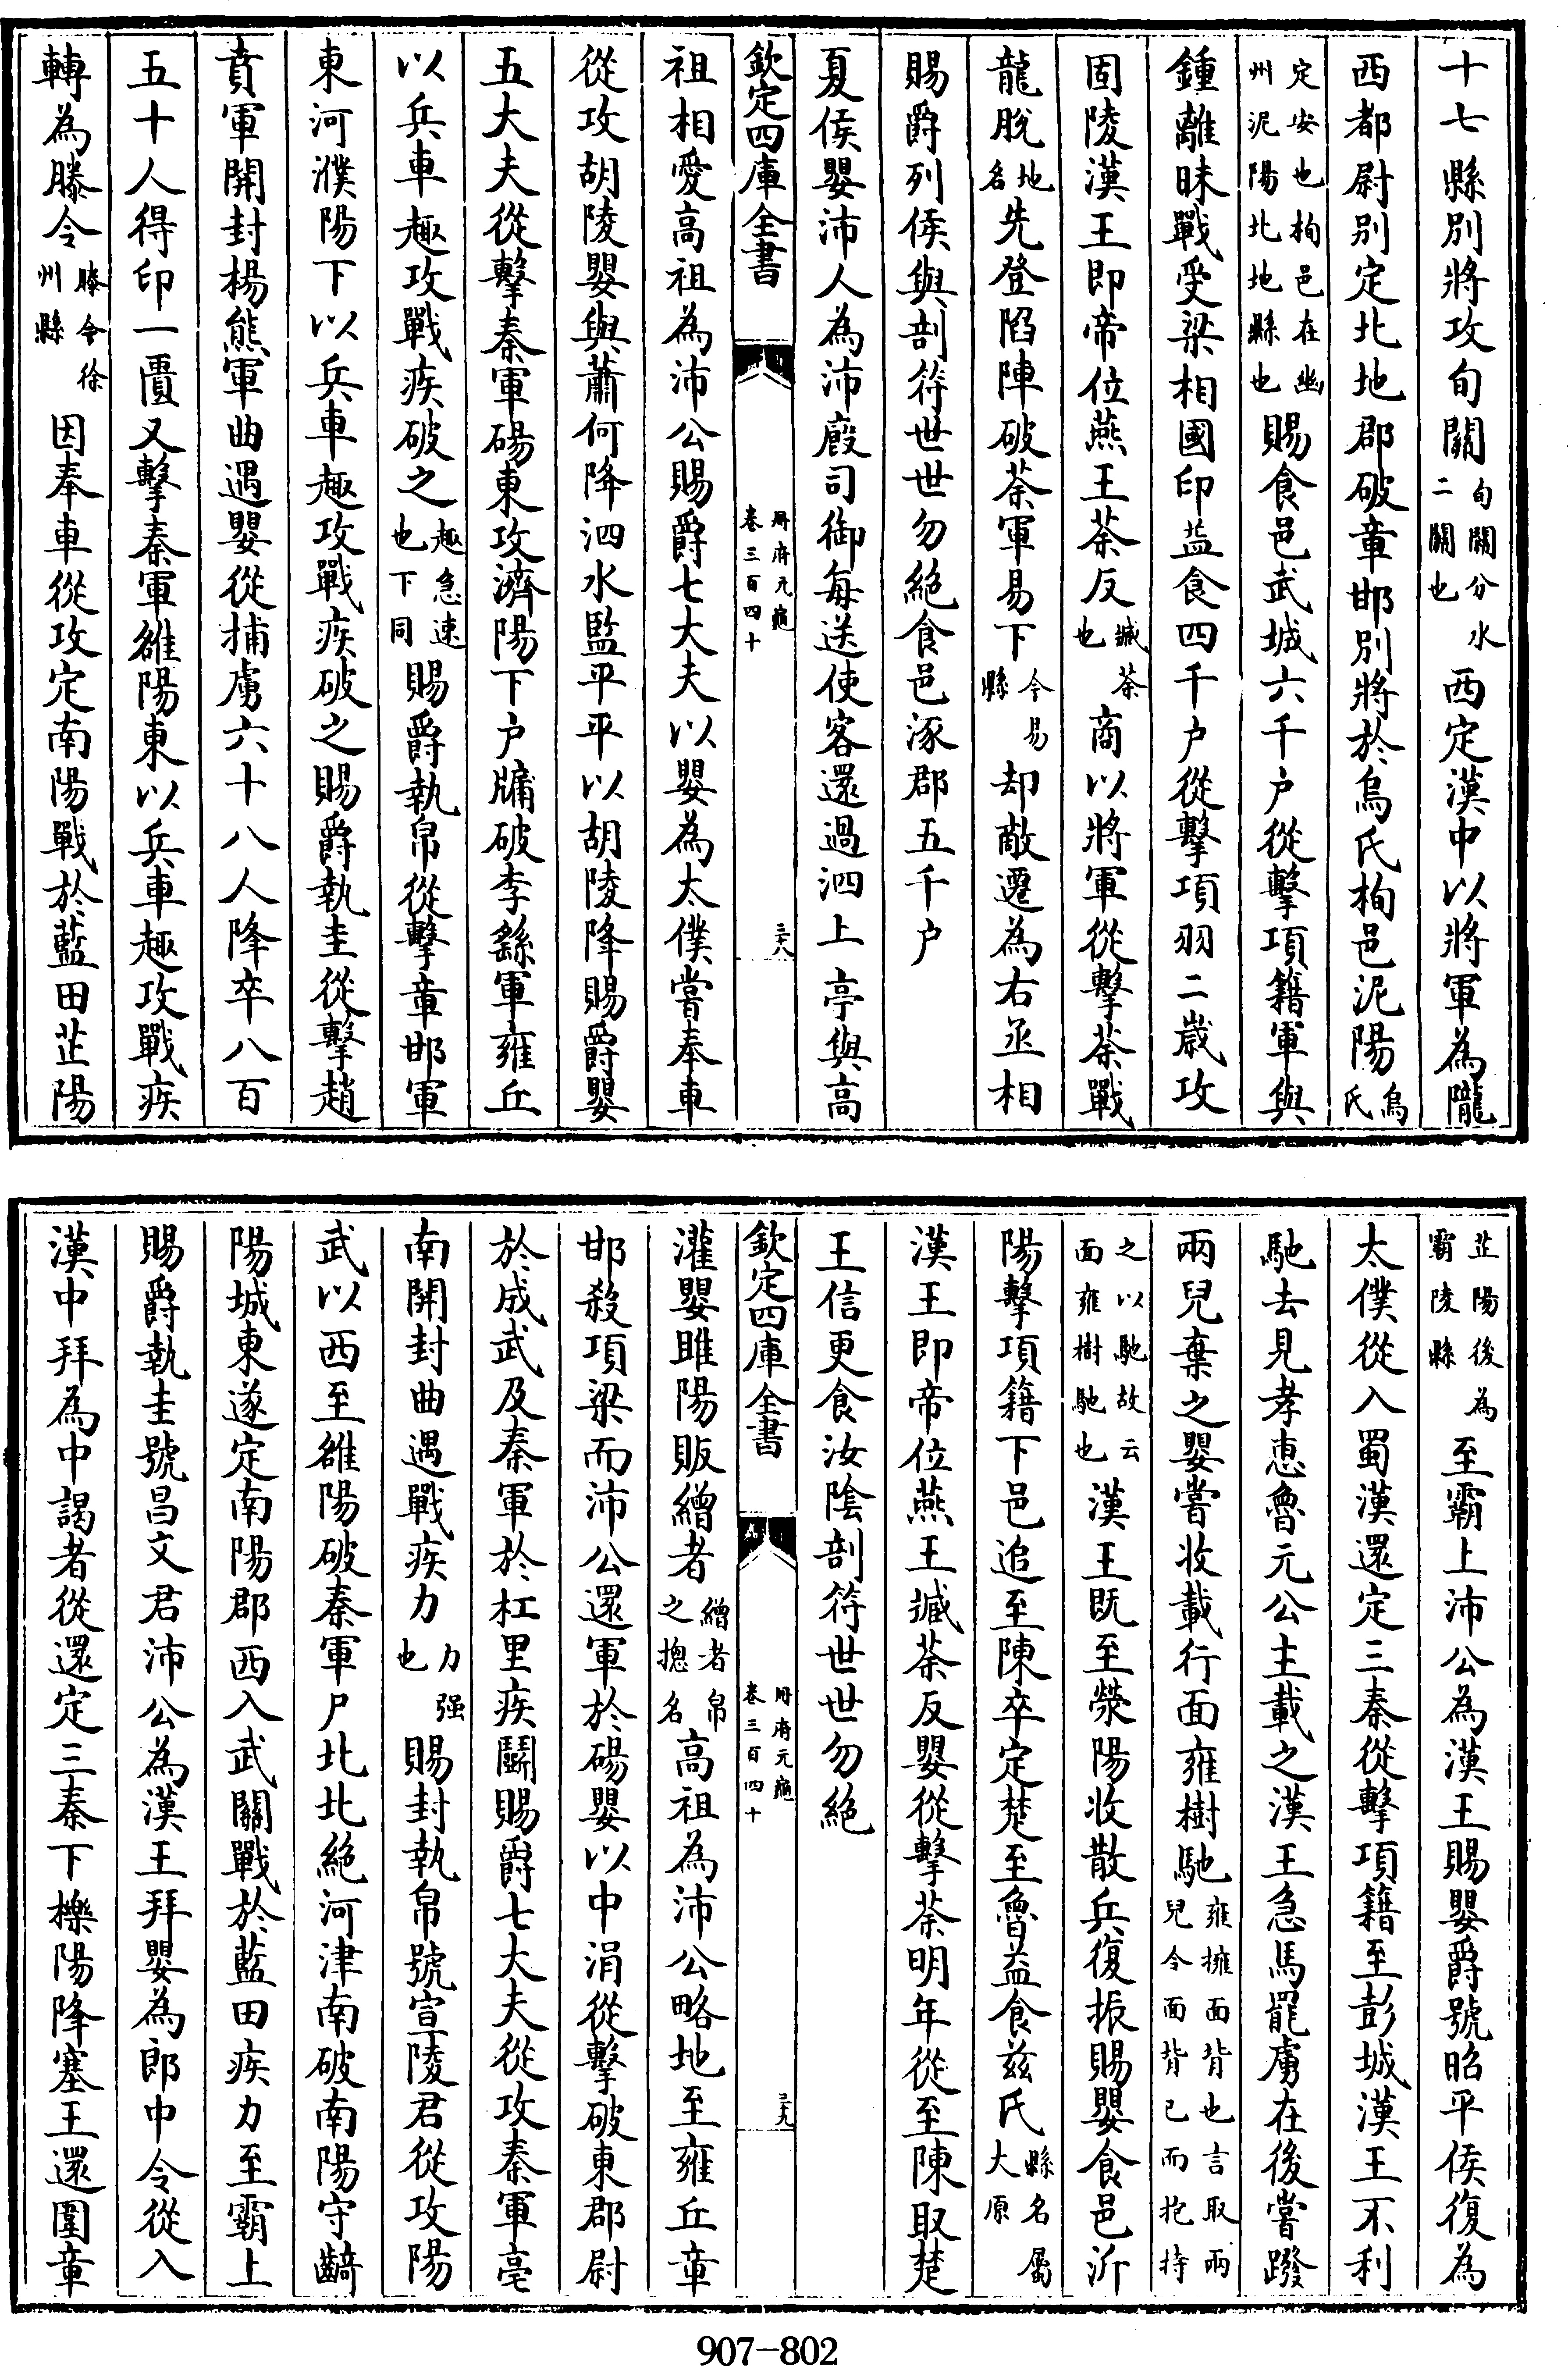 十七縣別將攻旬關旬關分水二關也西定漢中以將軍為隴
西都尉别定北地郡破章邯別將於烏氏栒邑泥陽烏氏
定安也栒邑在豳州泥陽北地縣也賜食邑武城六千户從擊項籍軍與
鍾離昧戰受梁相國印益食四千户從擊項羽二歲攻
固陵漢王即帝位燕王荼反臧荼也商以將軍從擊荼戰
龍脫地名先登陷陣破荼軍易下今易縣却敵遷為右丞相
賜爵列侯與剖符世世勿絕食邑涿郡五千户
夏侯嬰沛人為沛廏司御每送使客還過泗上亭與高
欽定四庫全書 冊府元龜卷三百四十 三八
祖相愛高祖為沛公賜爵七大夫以嬰為太僕嘗奉車
從攻胡陵嬰與蕭何降泗水監平平以胡陵降賜爵嬰
五大夫從擊秦軍碭東攻濟陽下户牖破李繇軍雍丘
以兵車趣攻戰疾破之趣急速也下同賜爵執帛從擊章邯軍
東河濮陽下以兵車趣攻戰疾破之賜爵執圭從擊趙
賁軍開封楊熊軍曲遇嬰從捕虜六十八人降卒八百
五十人得印一匱又擊秦軍雒陽東以兵車趣攻戰疾
轉為滕令滕令徐州縣因奉車從攻定南陽戰於藍田芷陽
芷陽後為霸陵縣至霸上沛公為漢王賜嬰爵號昭平侯復為
太僕從入蜀漢還定三秦從擊項籍至彭城漢王不利
馳去見孝惠魯元公主載之漢王急馬罷虜在後嘗蹳
兩兒棄之嬰嘗收載行面雍樹馳雍擁面背也言取兩兒令面背己而抱持
之以馳故云面雍樹馳也漢王既至滎陽收散兵復振賜嬰食邑沂
陽擊項籍下邑追至陳卒定楚至魯益食兹氏縣名屬大原
漢王即帝位燕王臧荼反嬰從擊荼明年從至陳取楚
王信更食汝陰剖符世世勿絕
欽定四庫全書 冊府元龜卷三百四十 三九
灌嬰雎陽販繒者繒者帛之摠名高祖為沛公略地至雍丘章
邯殺項梁而沛公還軍於碭嬰以中涓從擊破東郡尉
於成武及秦軍於杠里疾鬬賜爵七大夫從攻秦軍亳
南開封曲遇戰疾力力強也賜封執帛號宣陵君從攻陽
武以西至雒陽破秦軍尸北北絕河津南破南陽守齮
陽城東遂定南陽郡西入武關戰於藍田疾力至霸上
賜爵執圭號昌文君沛公為漢王拜嬰為郎中令從入
漢中拜為中謁者從還定三秦下櫟陽降塞王還圍章
907-802